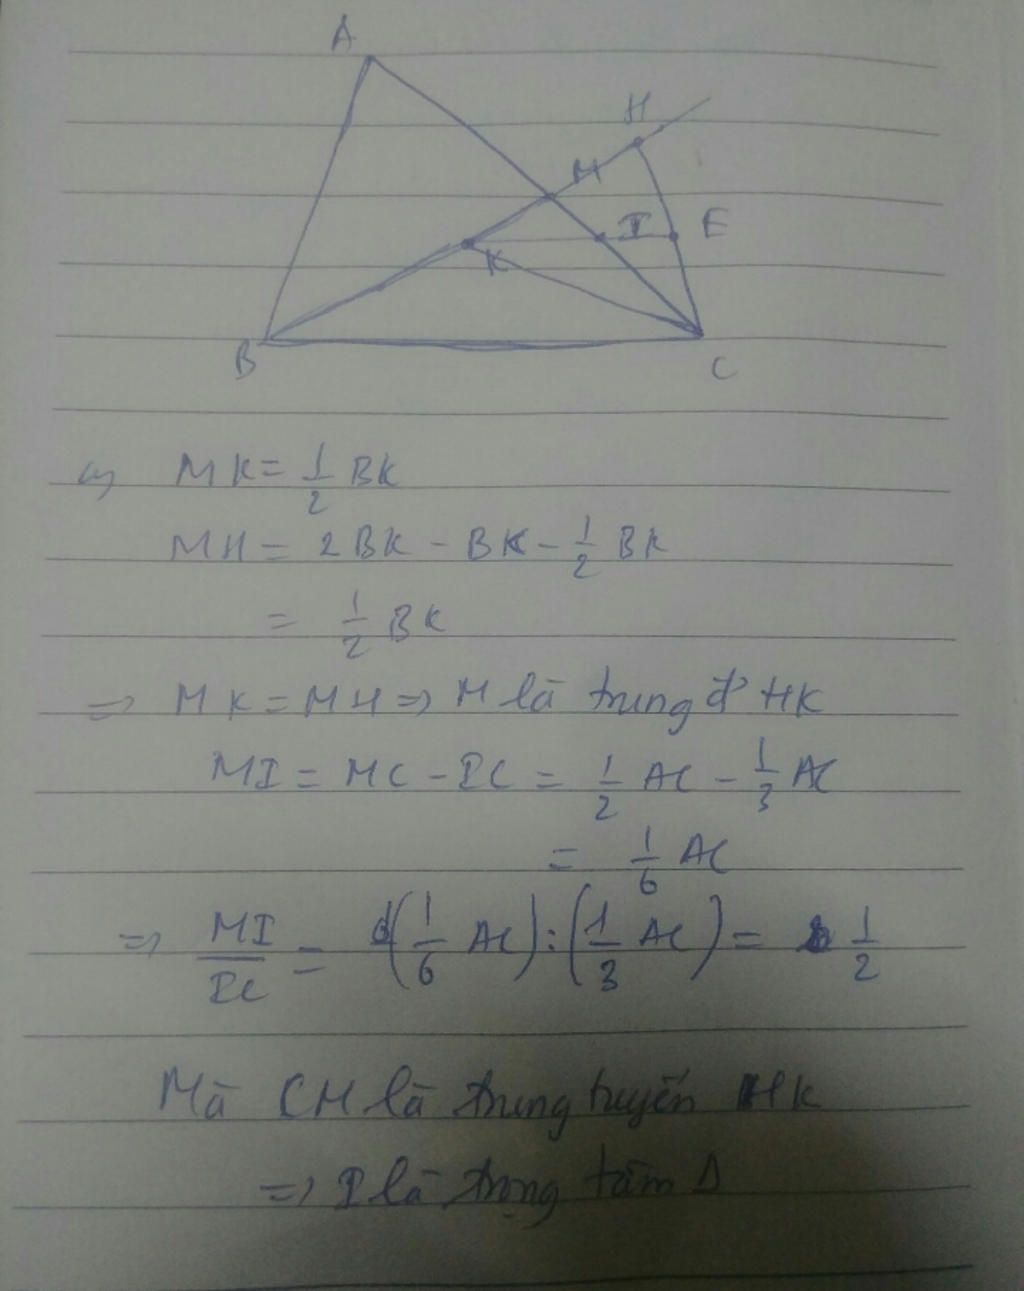 A
H
M
I E
K
B C
a) MK = 1/2 BK
MH = 2BK - BK - 1/2 BK
= 1/2 BK
=> MK = MH => M là trung đ' HK
MI = MC - IC = 1/2 AC - 1/3 AC
= 1/6 AC
=> MI/IC = (1/6 AC) : (1/3 AC) = 1/2
Mà CM là trung tuyến HK
=> I là trọng tâm Δ